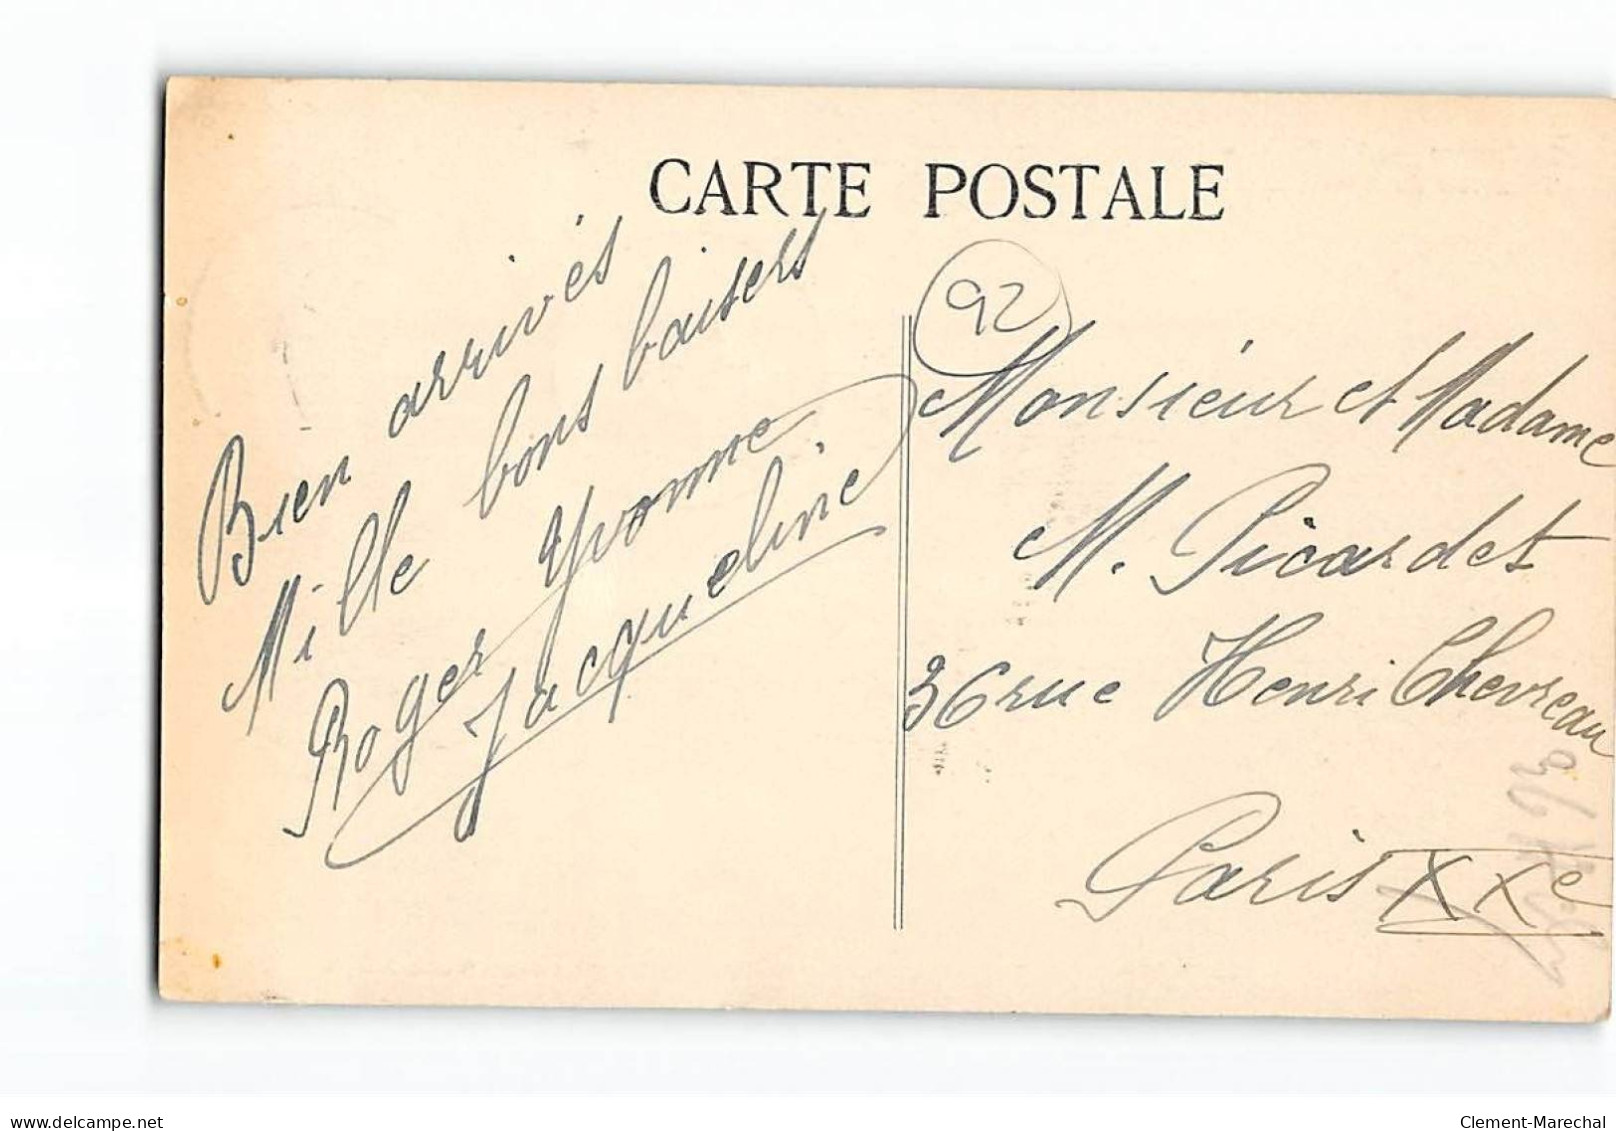 CARTE POSTALE
Bien arrivés
Mille bons baisers
Roger Yvonne
Jacqueline
92
Monsieur et Madame
M. Picardet
36 rue Henri Chevreau
Paris XXe
delcampe.net
Clement-Marechal